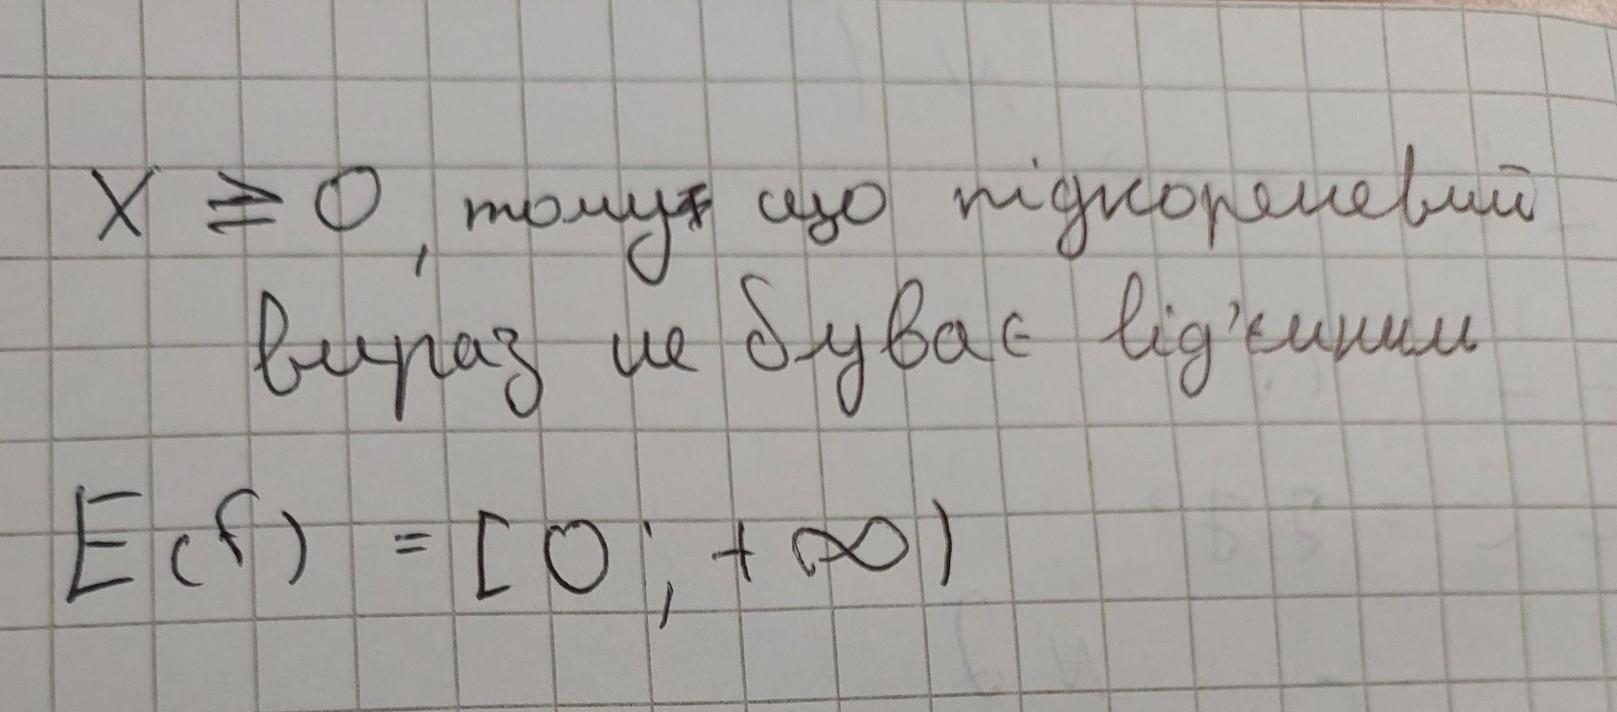 X ≥ 0, тому що підкореневий
вираз не буває від'ємним
E(f) = [0; +∞)